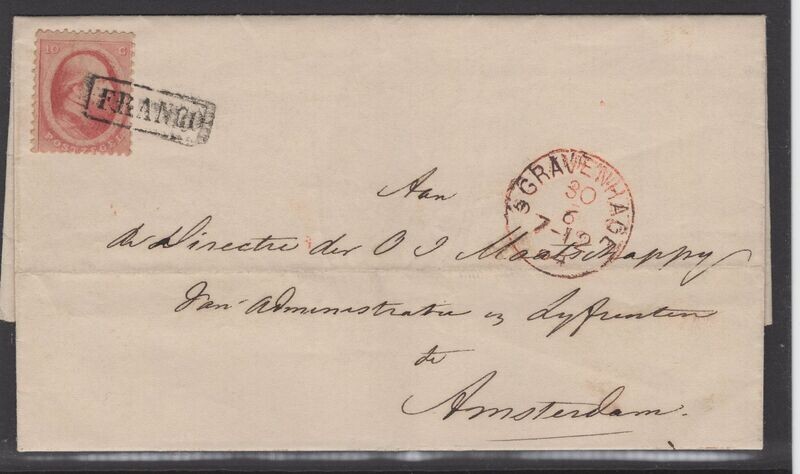 10 C
POSTZEGEL
FRANCO
'SGRAVENHAGE
30
6
7-12
Aan
de Directie der O I Maatschappy
van Administratie en Lyfrenten
te
Amsterdam.